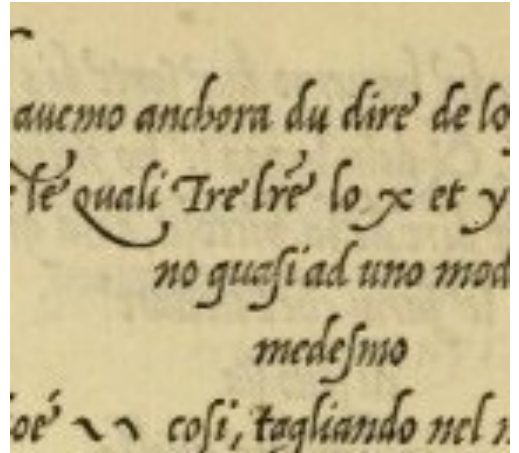 auemo anchora du dire de lo
le quali Tre lre lo x et y
no quaſi ad uno mod
medeſmo
oé coſi, tagliando nel